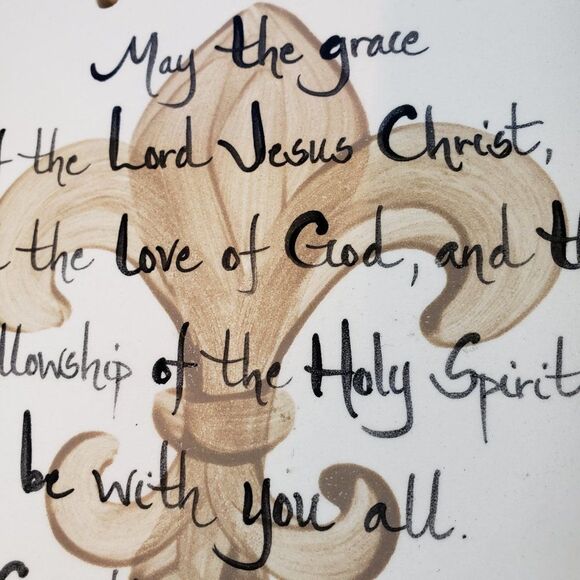 May the grace
the Lord Jesus Christ,
the love of God, and
llowship of the Holy Spirit
be with you all.